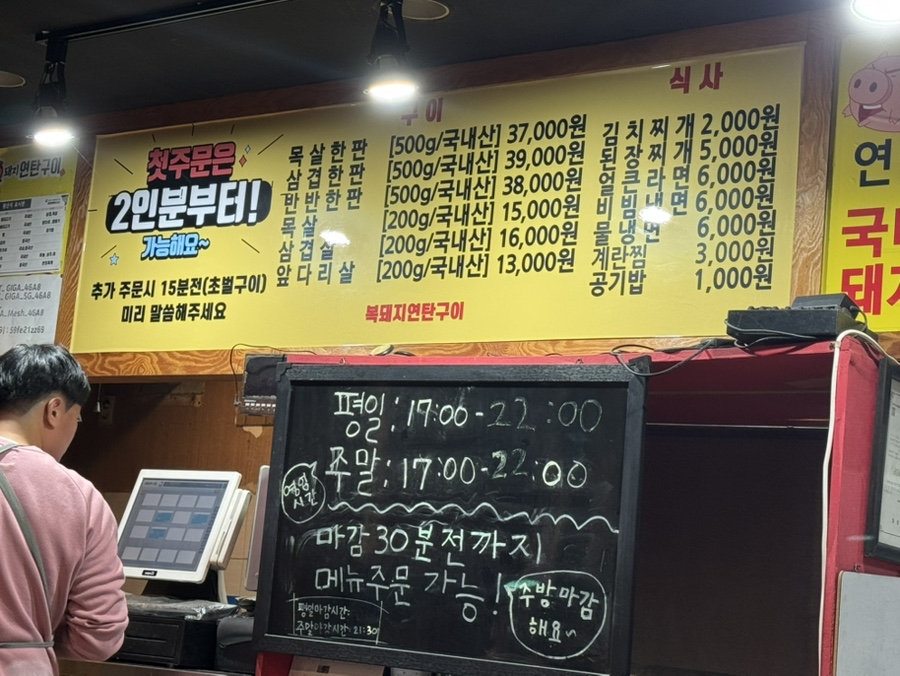 돼지연탄구이
첫주문은
2인분부터!
가능해요~
추가 주문시 15분전(초벌구이)
미리 말씀해주세요
구이
목살한판 [500g/국내산] 37,000원
삼겹한판 [500g/국내산] 39,000원
반반한판 [500g/국내산] 38,000원
목살 [200g/국내산] 15,000원
삼겹살 [200g/국내산] 16,000원
앞다리살 [200g/국내산] 13,000원
식사
김치찌개 2,000원
된장찌개 5,000원
얼큰라면 6,000원
비빔냉면 6,000원
물냉면 6,000원
계란찜 3,000원
공기밥 1,000원
복돼지연탄구이
연
국내
돼지
GIGA_46A8
GIGA_5G_46A8
Mesh_46A8
59fe21zz69
평일:17:00-22:00
주말:17:00-22:00
영업
시간
마감30분전까지
메뉴주문 가능!
주방마감
해요~
평일마감시간:
주말마감시간:21:30